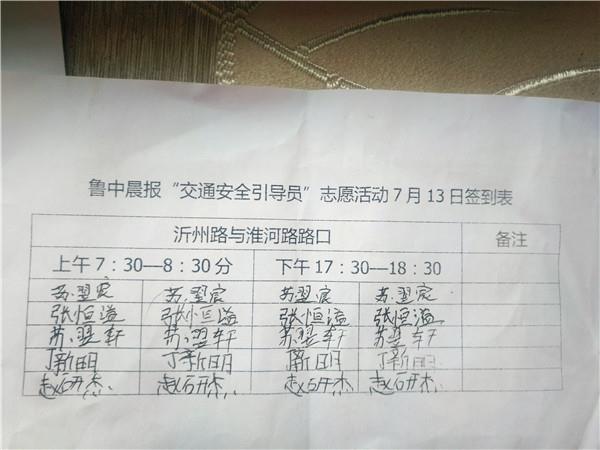 鲁中晨报“交通安全引导员”志愿活动7月13日签到表
沂州路与淮河路路口 备注
上午7：30—8：30分 下午17：30—18：30
苏翌宸 苏翌宸 苏翌宸 苏翌宸
张恒溢 张恒溢 张恒溢 张恒溢
苏翌轩 苏翌轩 苏翌轩 苏翌轩
丁新明 丁新明 丁新明 丁新明
赵研杰 赵研杰 赵研杰 赵研杰